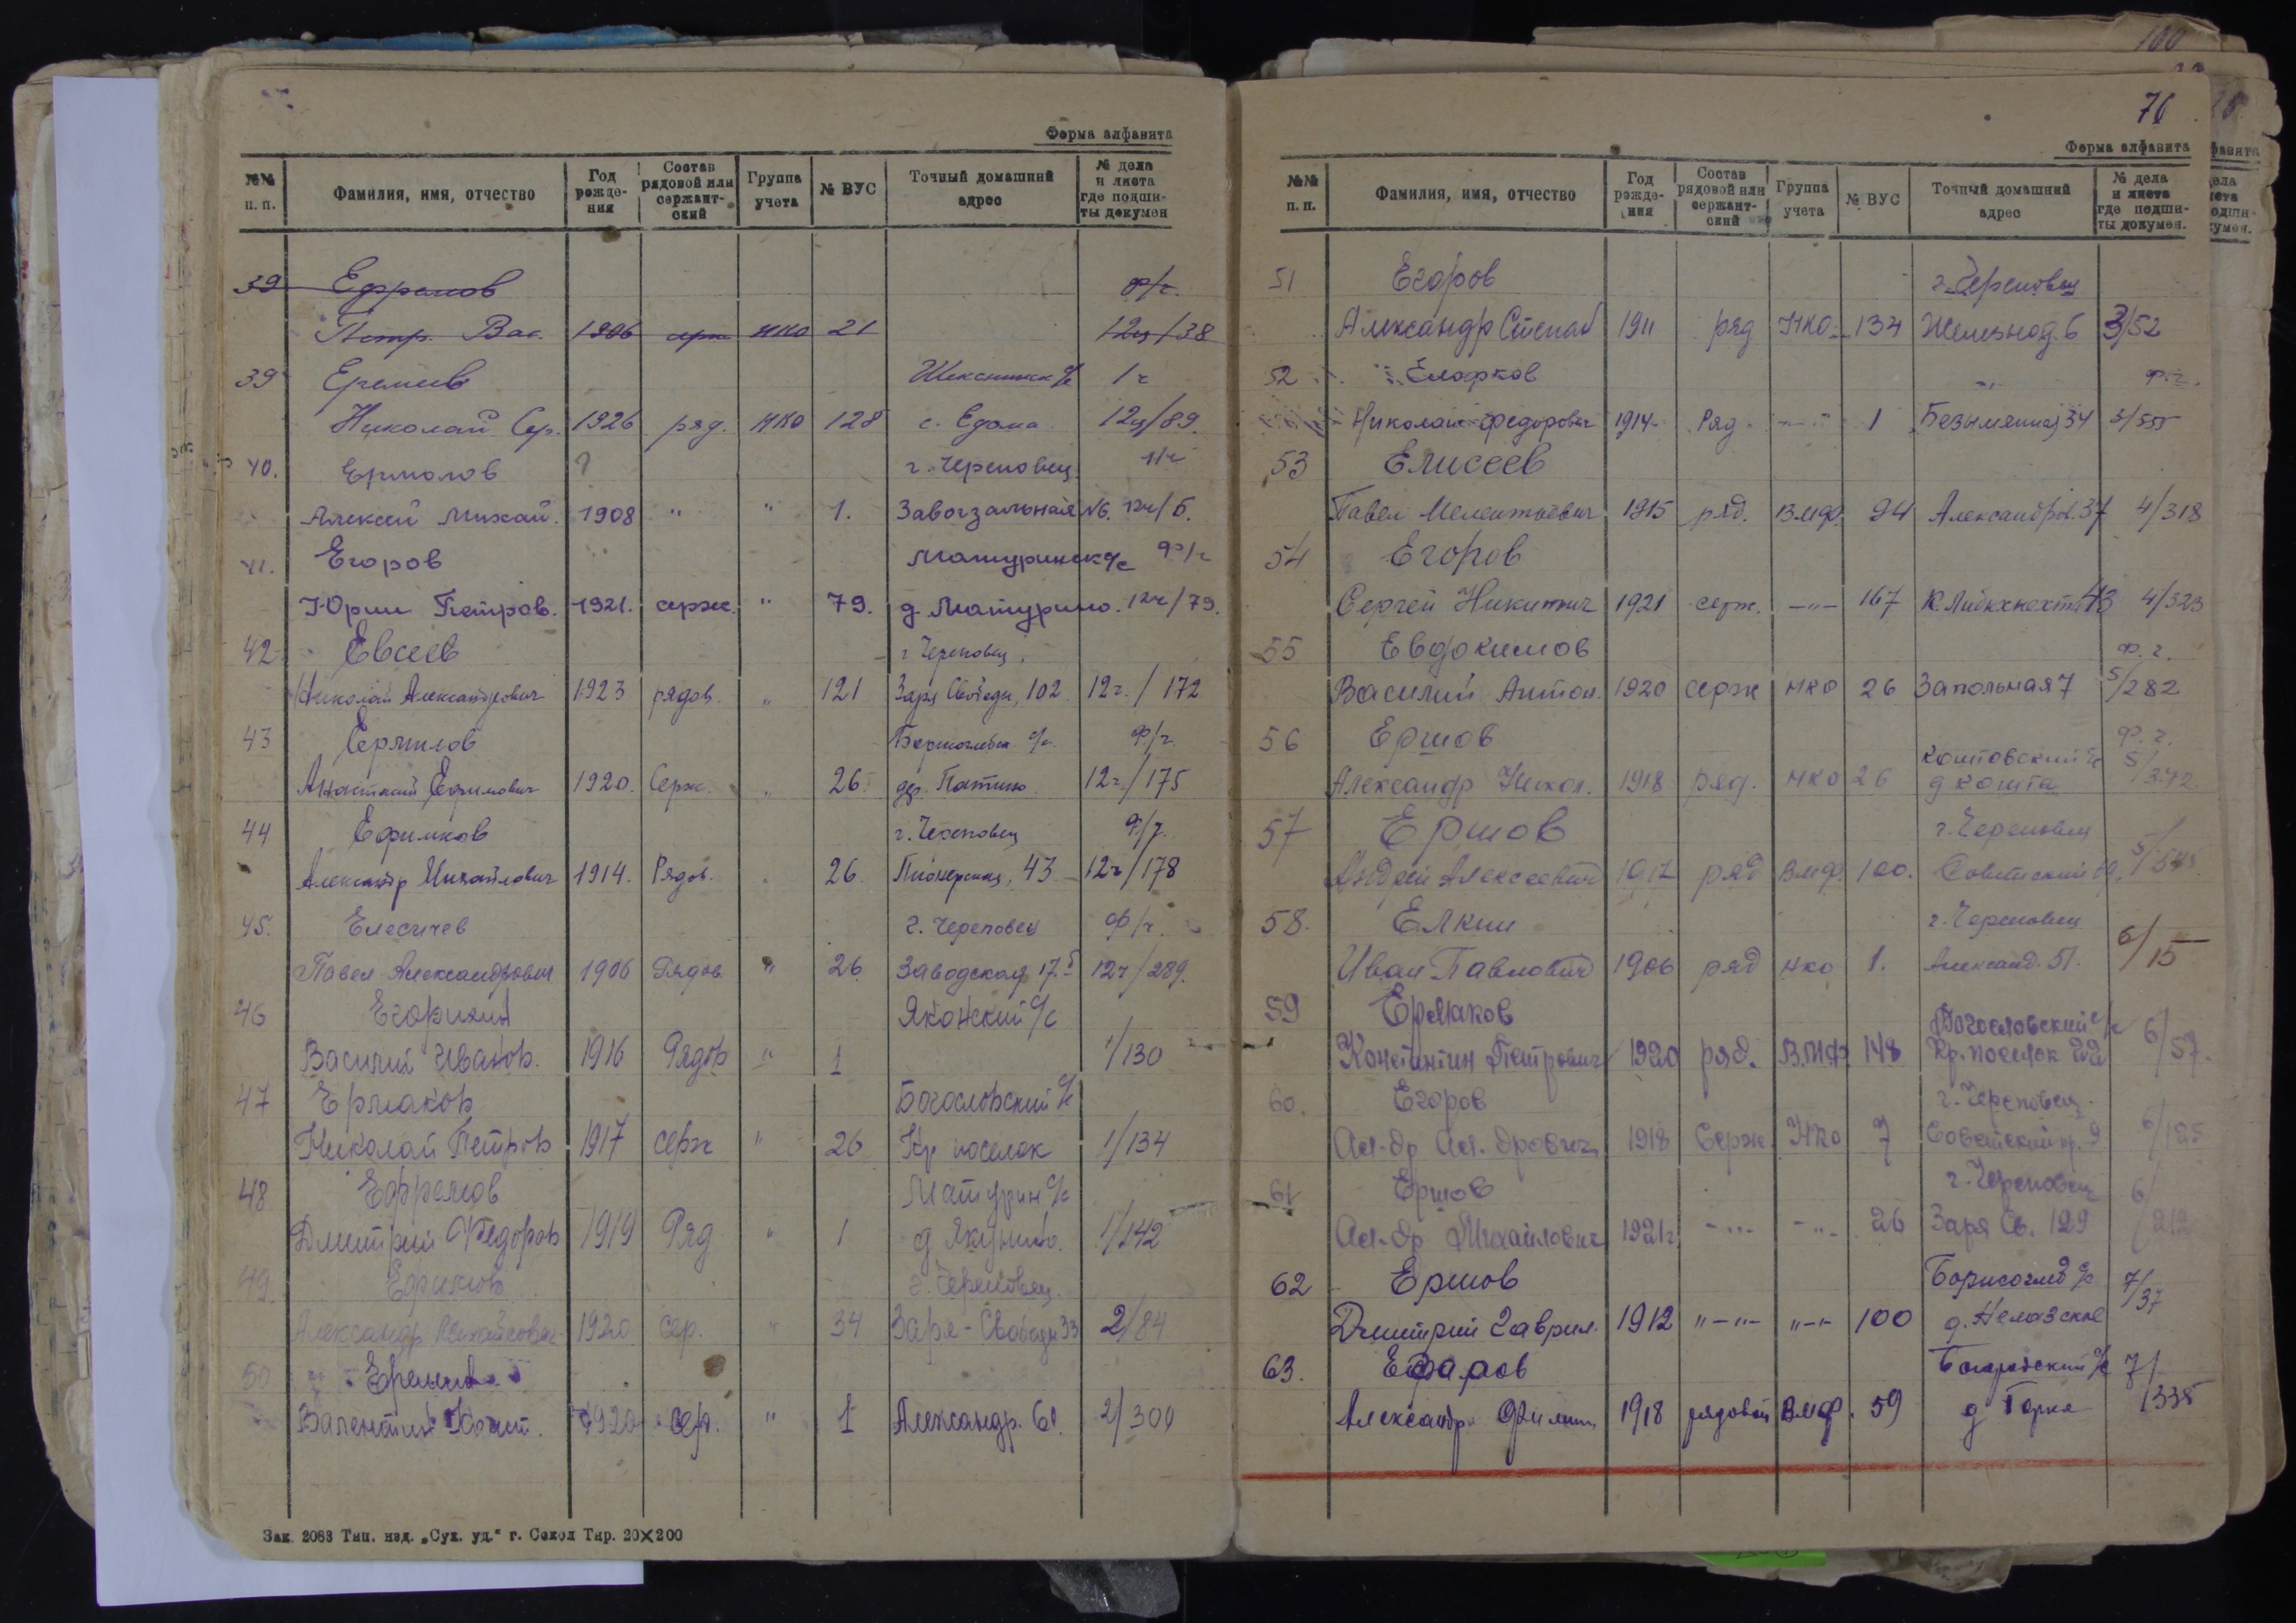 Форма алфавита
№№ п. п. Фамилия, имя, отчество Год рожде- ния Состав рядовой или сержант- ский Группа учета № ВУС Точный домашний адрес № дела и листа где подши- ты докумен
39 Ефремов ф/г.
Петр. Вас. 1906 серж НКО 21 12ч/38
39 Еремеев Шекснинск с/с 1 г
Николай Сер. 1926 ряд. НКО 128 с. Едома 12ч/89.
40. Ермолов г. Череповец
Алексей Михай. 1908 " " 1. Завокзальная №6. 12ч/5.
41. Егоров Матуринск с/с ф/г
Юрий Петров. 1921. серж. " 79. д. Матурино. 12ч/79.
42 Евсеев г Череповец.
Николай Александрович 1923 рядов. " 121 Заря Свободы, 102. 12г./172
43 Ермилов с/с. Ф/г.
Ефимович 1920. Серж. " 26. дер. 12г/175
44 Ефимков г. Череповец Ф/г.
Александр Михайлович 1914. Рядов. 26. Пионерская, 43 12г/178
45. Елесичев г. Череповец ф/г.
Павел Александрович 1906 Рядов " 26. Заводская 17. 12ч/289.
46 Яконский с/с
Василий Иванов. 1916 Рядов " 1 1/130
47 Ермаков Богословский с/с
Николай Петров 1917 серж " 26 Кр поселок 1/134
48 Ефремов Матурин с/с
Дмитрий Федоров 1919 Ряд " 1 д Якунино. 1/142
49. г. Череповец.
Александр Михайлович 1920 сер. " 34 Заря-Свободы 33 2/84
50
Валентин Конст. 1920 сер. " 1 Александр. 61. 2/300
Зак. 2083 Тип. изд. „Сух. уд.“ г. Сокол Тир. 20×200
76
Форма алфавита
№№ п. п. Фамилия, имя, отчество Год рожде- ния Состав рядовой или сержант- ский Группа учета № ВУС Точный домашний адрес № дела и листа где подши- ты докумен.
51 Егоров г. Череповец
Александр Степан 1911 ряд НКО 134 Железнод. 6 3/52
52 ф. г.
Николай Федорович 1914 Ряд -"- 1 Безымянная 34 3/555
53 Елисеев
Павел Мелентьевич 1915 ряд. ВМФ. 94 Александров. 37 4/318
54 Егоров
Сергей Никитич 1921 серж. -"- 167 К Либкнехта 43 4/323
55 Евдокимов Ф. г.
Василий Антон. 1920 серж НКО 26 Запольная 7 5/282
56 Ершов Ф. г.
Коштовский с/с
Александр Никол. 1918 ряд. НКО 26 д Кошта 5/342
57 Ершов г. Череповец
Андрей Алексеевич 1917 ряд ВМФ. 100. Советский 5/545
58. Елкин г. Череповец
Иван Павлович 1906 ряд НКО 1. Александ. 51. 6/15
59 Ермаков Богословский с/с
Константин Петрович 1920 ряд. ВМФ 148 Кр. поселок 6/57.
60. Егоров г. Череповец.
Ал-др Ал-дрович 1918 Серж. НКО 7 Советский пр. 9 6/125
61 Ершов г. Череповец
Ал-др Михайлович 1921г. -"- -"- 26 Заря Св. 129 6/212
62 Ершов Борисоглеб с/с
Дмитрий Гаврил. 1912 "-"- "-"- 100 д. Нелазское 7/37
63.
Александр Филип. 1918 рядовой ВМФ. 59 д Горка 7/335